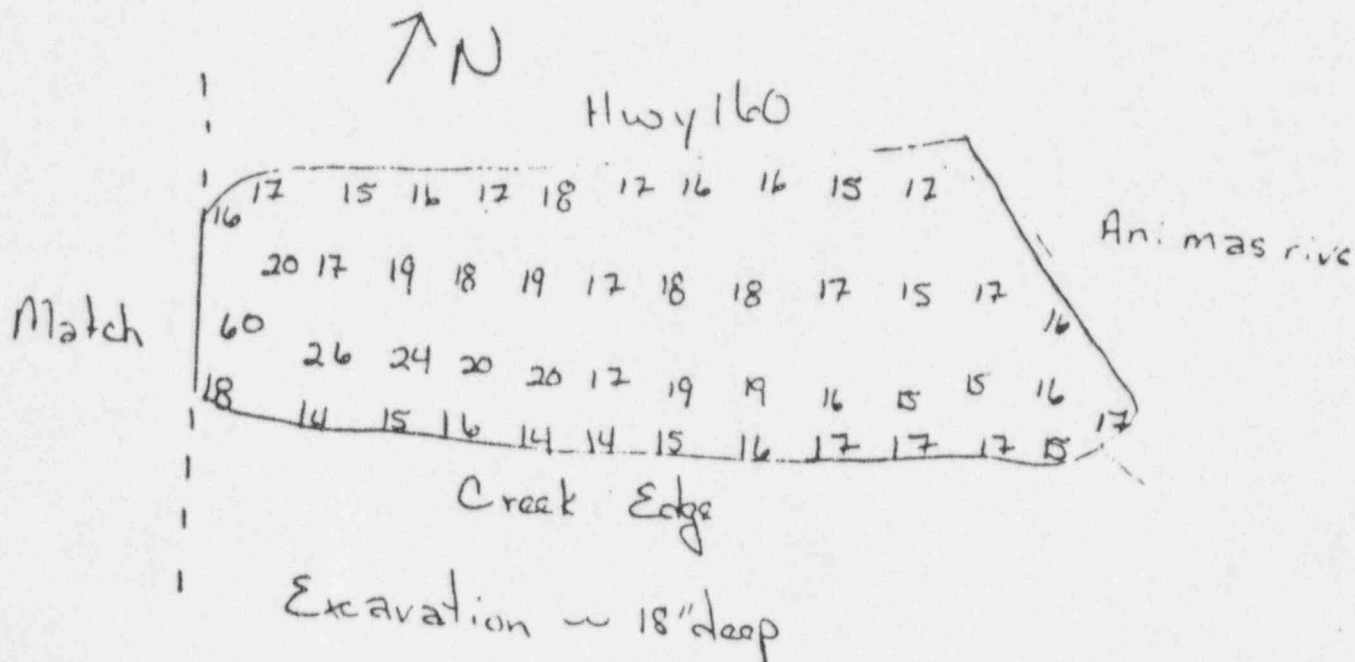 N
Hwy 160
17 15 16 17 18 17 16 16 15 17
16
Animas rive
20 17 19 18 19 17 18 18 17 15 17
16
Match
60
26 24 20 20 17 19 19 16 15 15 16
18
14 15 16 14 14 15 16 17 17 17 15 17
Creek Edge
Excavation ~ 18" deep